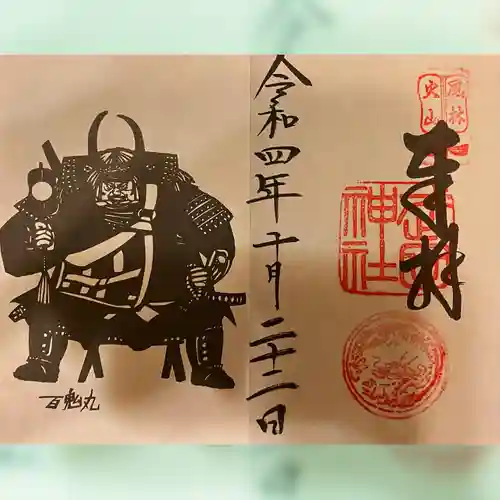 風林
火山
奉拝
神社
令和四年十月二十二日
百鬼丸